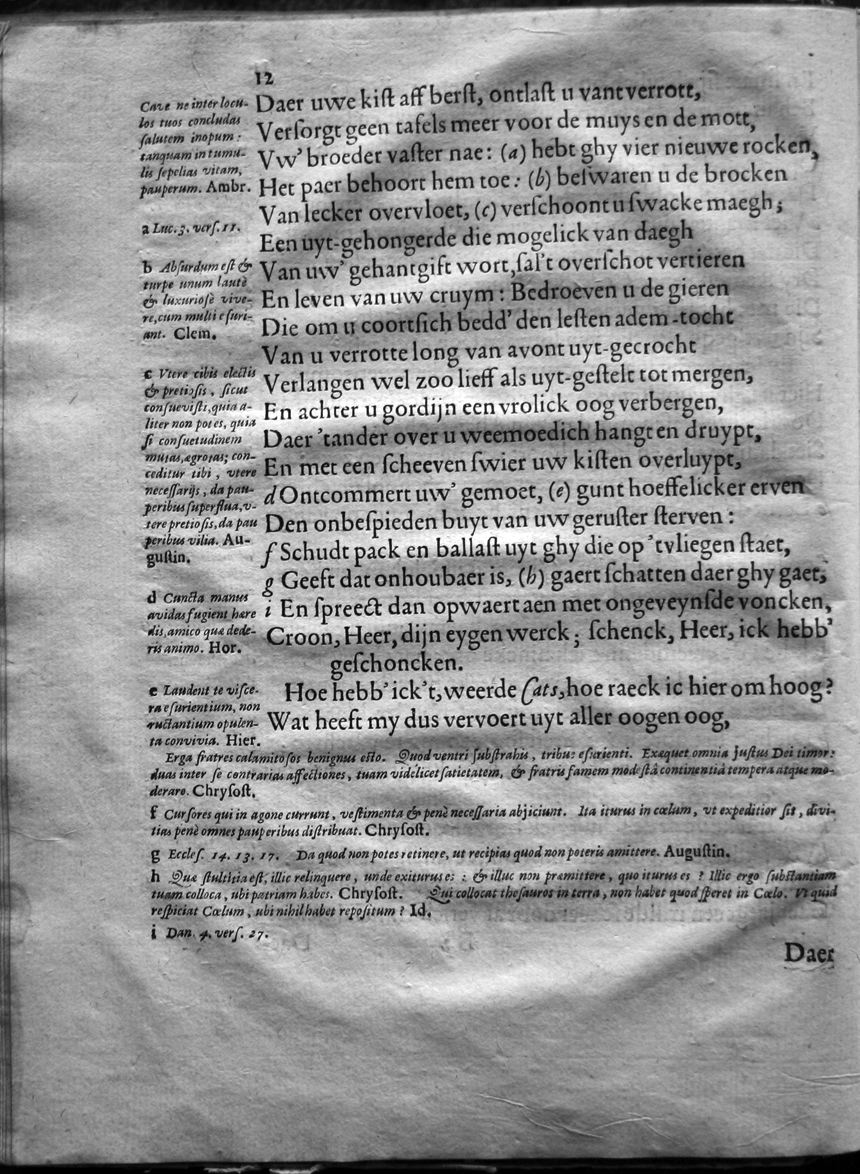 12
Daer uwe kiſt aff berſt, ontlaſt u vant verrott,
Verſorgt geen tafels meer voor de muys en de mott,
Vw' broeder vaſter nae: (a) hebt ghy vier nieuwe rocken,
Het paer behoort hem toe: (b) beſwaren u de brocken
Van lecker overvloet, (c) verſchoont u ſwacke maegh;
Een uyt-gehongerde die mogelick van daegh
Van uw' gehantgift wort, ſal't overſchot vertieren
En leven van uw cruym: Bedroeven u de gieren
Die om u coortſich bedd' den leſten adem-tocht
Van u verrotte long van avont uyt-gecrocht
Verlangen wel zoo lieff als uyt-geſtelt tot mergen,
En achter u gordijn een vrolick oog verbergen,
Daer 'tander over u weemoedich hangt en druypt,
En met een ſcheeven ſwier uw kiſten overluypt,
d Ontcommert uw' gemoet, (e) gunt hoeffelicker erven
Den onbeſpieden buyt van uw geruſter ſterven:
f Schudt pack en ballaſt uyt ghy die op 't vliegen ſtaet,
g Geeft dat onhoubaer is, (h) gaert ſchatten daer ghy gaet,
i En ſpreect dan opwaert aen met ongeveynſde voncken,
Croon, Heer, dijn eygen werck; ſchenck, Heer, ick hebb'
geſchoncken.
Hoe hebb' ick 't, weerde Cats, hoe raeck ic hier om hoog?
Wat heeft my dus vervoert uyt aller oogen oog,
Cave ne inter locu-
los tuos concludas
ſalutem inopum:
tanquam in tumu-
lis ſepelias vitam,
pauperum. Ambr.
a Luc. 3. verſ. 11.
b Abſurdum eſt &
turpe unum lautè
& luxurioſè vive-
re, cum multi eſuri-
ant. Clem.
c Vtere cibis electis
& pretioſis, ſicut
conſueviſti, quia a-
liter non potes, quia
ſi conſuetudinem
mutas, ægrotas; con-
ceditur tibi, vtere
neceſſarijs, da pau-
peribus ſuperflua, v-
tere pretioſis, da pau
peribus vilia. Au-
guſtin.
d Cuncta manus
avidas fugient hære
dis, amico quæ dede-
ris animo. Hor.
e Laudent te viſce-
ra eſurientium, non
ructantium opulen-
ta convivia. Hier.
Erga fratres calamitoſos benignus eſto. Quod ventri ſubſtrahis, tribue eſurienti. Exæquet omnia juſtus Dei timor:
duas inter ſe contrarias affectiones, tuam videlicet ſatietatem, & fratris famem modeſtâ continentiâ tempera atque mo-
derare. Chryſoſt.
f Curſores qui in agone currunt, veſtimenta & penè neceſſaria abjiciunt. Ita iturus in cœlum, vt expeditior ſit, divi-
tias penè omnes pauperibus diſtribuat. Chryſoſt.
g Eccleſ. 14. 13. 17. Da quod non potes retinere, ut recipias quod non poteris amittere. Auguſtin.
h Quæ ſtultitia eſt, illic relinquere, unde exiturus es: & illuc non præmittere, quo iturus es? Illic ergo ſubſtantiam
tuam colloca, ubi patriam habes. Chryſoſt. Qui collocat theſauros in terra, non habet quod ſperet in Cœlo. Vt quid
reſpiciat Cœlum, ubi nihil habet repoſitum? Id.
i Dan. 4. verſ. 27.
Daer